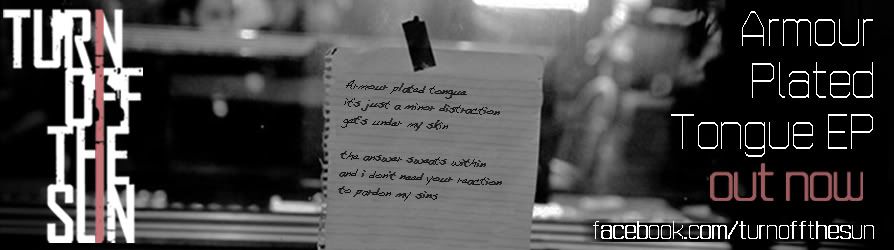 TURN
OFF
THE
SUN
Armour plated tongue
it's just a minor distraction
gets under my skin
the answer sweats within
and i don't need your reaction
to pardon my sins
Armour
Plated
Tongue EP
out now
facebook.com/turnoffthesun